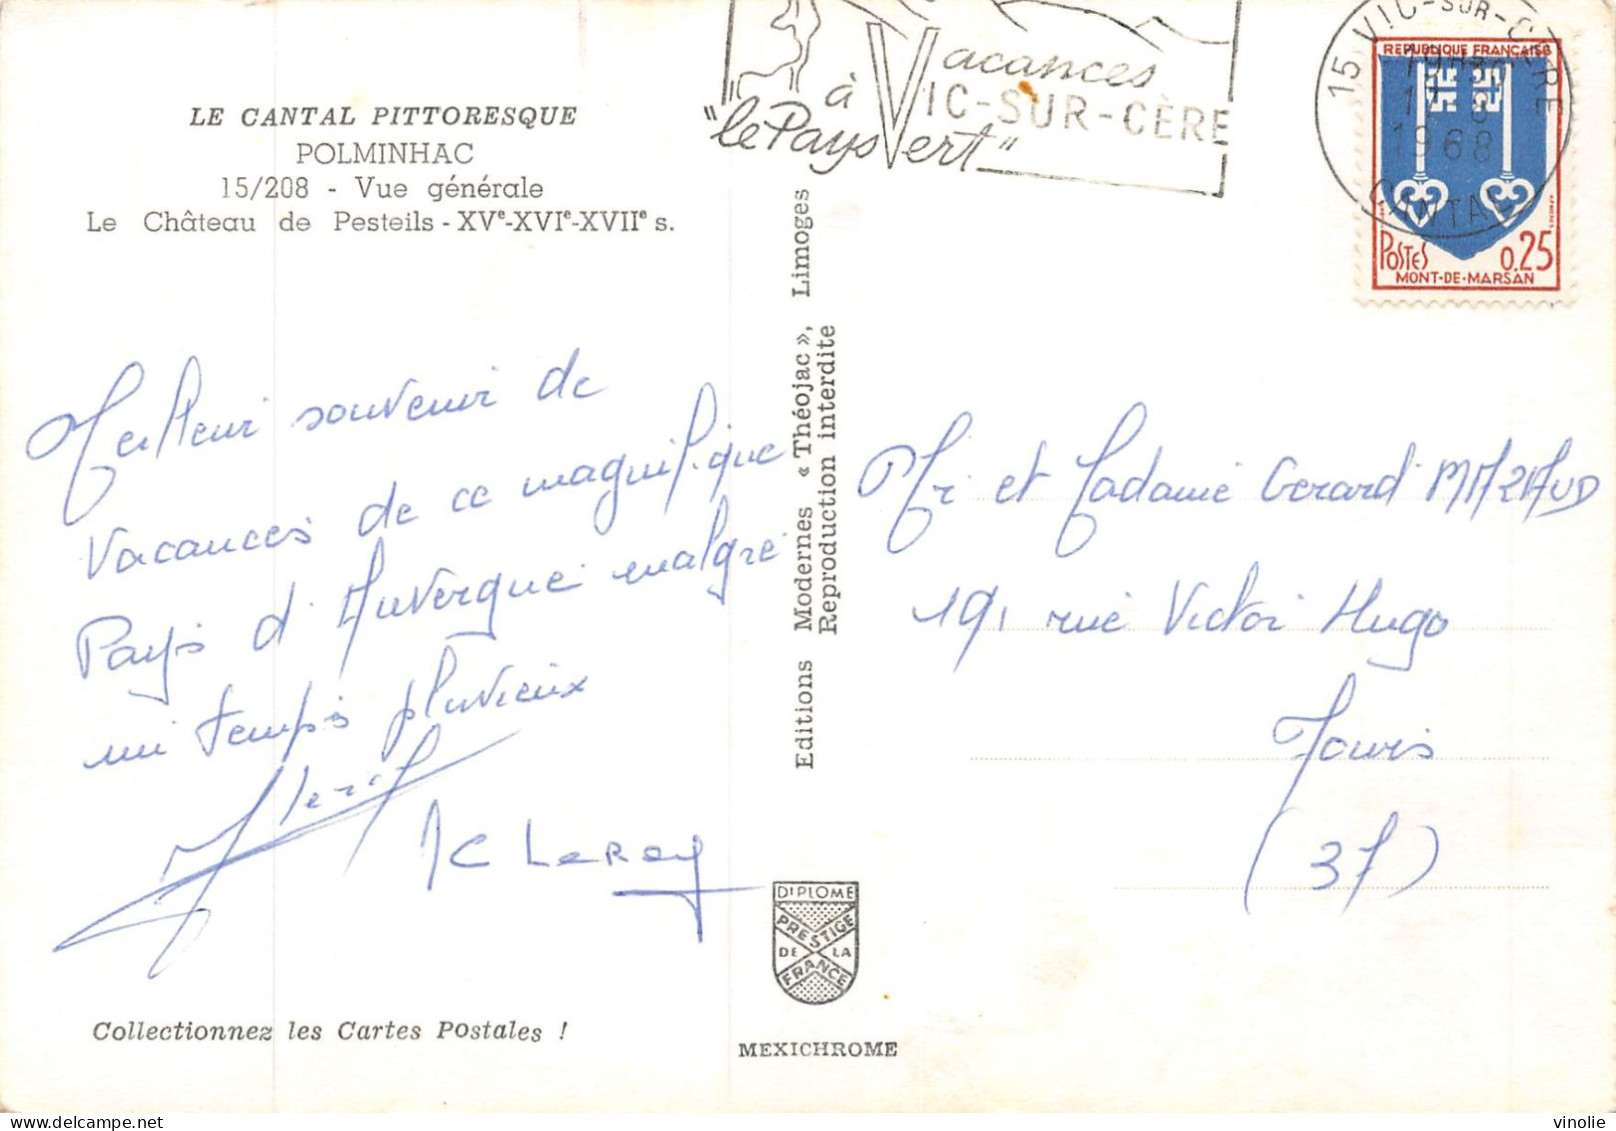 LE CANTAL PITTORESQUE
POLMINHAC
15/208 - Vue générale
Le Château de Pesteils - XVe-XVIe-XVIIe s.
Meilleur souvenir de
vacances de ce magnifique
Pays d'Auvergne malgré
un temps pluvieux
JC LeRoy
Collectionnez les Cartes Postales !
Vacances
à VIC-SUR-CÈRE
"le Pays Vert"
Editions Modernes « Théojac », Limoges
Reproduction interdite
DIPLOME
PRESTIGE
DE LA
FRANCE
MEXICHROME
15 VIC-SUR-CERE
1968
CANTAL
REPUBLIQUE FRANÇAISE
POSTES 0.25
MONT-DE-MARSAN
Mr et Madame Gerard
191 rue Victor Hugo
Tours
(37)
vinolie